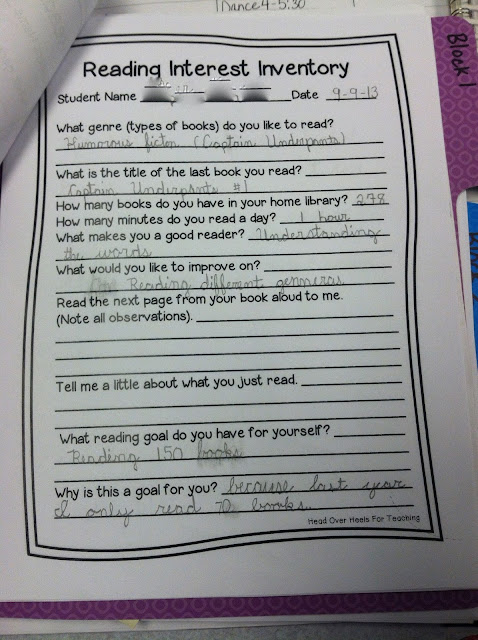 Dance 4-5:30
Block 1
Reading Interest Inventory
Student Name Date 9-9-13
What genre (types of books) do you like to read?
Humorous ficton (Captain Underpants)
What is the title of the last book you read?
Captain Underpants #1
How many books do you have in your home library? 278
How many minutes do you read a day? 1 hour
What makes you a good reader? Understanding
the words
What would you like to improve on?
Reading different genneras
Read the next page from your book aloud to me.
(Note all observations).
Tell me a little about what you just read.
What reading goal do you have for yourself?
Reading 150 books
Why is this a goal for you? because last year
I only read 70 books.
Head Over Heels For Teaching